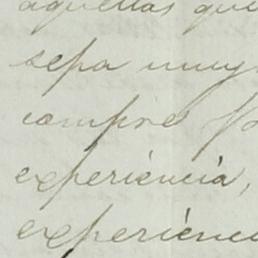 aquellas que
sepa muy
compre
experiencia,
experienc